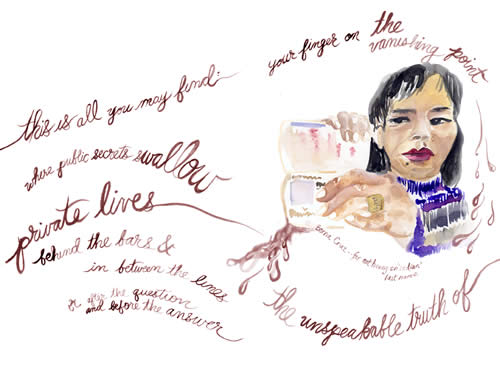 this is all you may find:
where public secrets swallow
private lives
behind the bars &
in between the lines
or after the question
and before the answer
your finger on the
vanishing point
the unspeakable truth of
"last name"